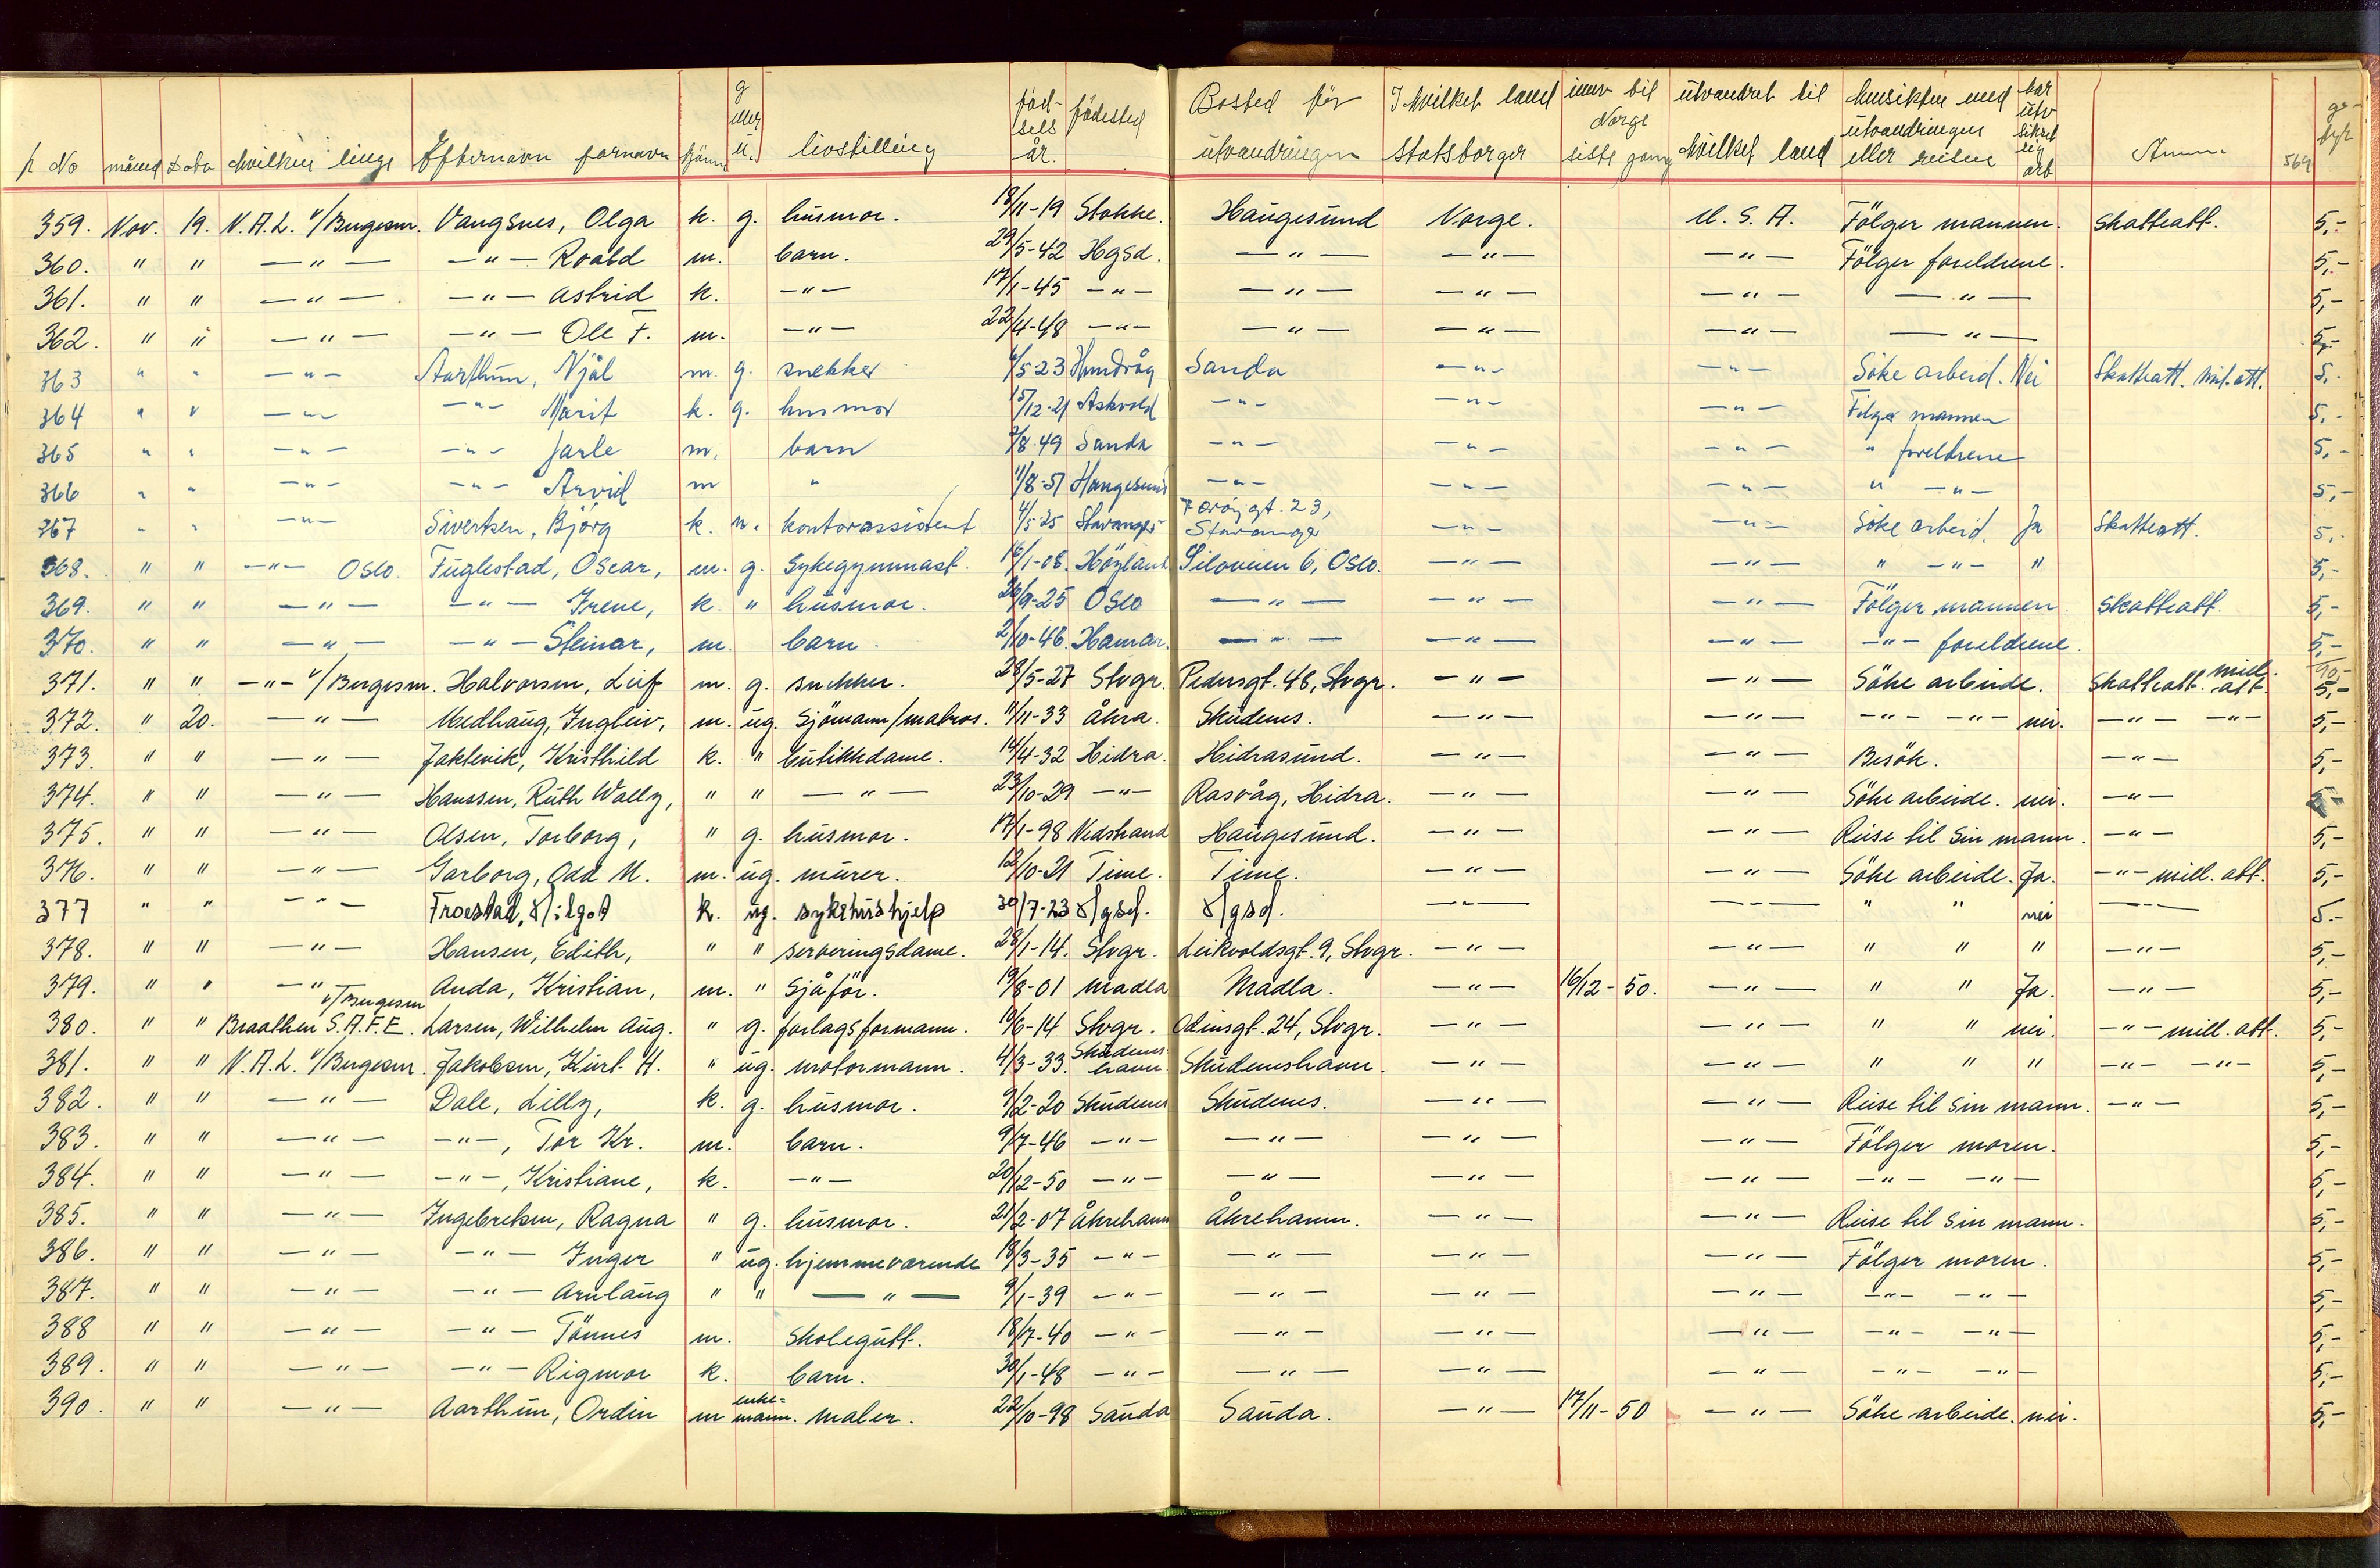 p No måned Dato hvilken linje Efternavn fornavn kjönn g eller u. livsstilling födsels år. födested Bosted för utvandringen I hvilket land statsborger innv til Norge siste gang utvandret til hvilket land hensikten med utvandringen eller reisen har utv sikret sig arb Anm. 569 gebyr
359. Nov. 19. N.A.L. v/Bergesen. Vangsnes, Olga k. g. husmor. 18/11-19 Stokke. Haugesund Norge. U.S.A. Fölger mannen. Skatteatt. 5,-
360. " " —"— —"— Roald m. barn. 29/5-42 Hgsd. —"— —"— —"— Fölger foreldrene. 5,-
361. " " —"— —"— Astrid k. —"— 17/1-45 —"— —"— —"— —"— —"— 5,-
362. " " —"— —"— Ole F. m. —"— 22/4-48 —"— —"— —"— —"— —"— 5,-
363 " " —"— Aarthun, Njål m. g. snekker 6/5 23 Sanda —"— —"— Söke arbeid. Nei Skatteatt. mil. att. 5.-
364 " " —"— —"— Marit k. g. husmor 15/12-21 Askvold —"— —"— —"— Fölger mannen 5,-
365 " " —"— —"— Jarle m. barn 7/8 49 Sanda —"— —"— —"— " foreldrene 5,-
366 " " —"— —"— Arvid m " 11/8-51 Haugesund —"— —"— —"— " —"— 5,-
367 " " —"— Sivertsen, Bjørg k. u. kontorassistent 4/5 25 Stavanger Torøygt. 23, Stavanger —"— —"— Söke arbeid. Ja Skatteatt. 5,-
368. " " —"— Oslo. Fuglestad, Oscar, m. g. Sykegymnast. 16/1-08. Höyland Siloveien 6, Oslo. —"— —"— " —"— " 5,-
369. " " —"— —"— Irene, k. " husmor. 26/9-25 Oslo —"— —"— —"— Fölger mannen Skatteatt. 5,-
370. " " —"— —"— Steinar, m. barn. 2/10-46. Hamar. —"— —"— —"— —"— foreldrene. 5,-
371. " " —"— v/Bergesen. Halvorsen, Leif m. g. snekker. 28/5-27 Stvgr. Pedersgt. 48, Stvgr. —"— —"— Söke arbeide. Skatteatt. mil. att 90,- 5,-
372. " 20. —"— Medhaug, Ingleiv, m. ug. Sjömann/matros. 11/11-33 Åkra. Skudenes. —"— —"— —"— —"— nei. —"— —"— 5,-
373. " " —"— Jaktevik, Kristhild k. " butikkdame. 14/4-32 Hidra. Hidrasund. —"— —"— Besök. —"— 5,-
374. " " —"— Hanssen, Ruth Wally, " " —"— 23/10-29 —"— Rasvåg, Hidra. —"— —"— Söke arbeide. nei. —"— 5,-
375. " " —"— Olsen, Torborg, " g. husmor. 17/1-98 Nedstrand Haugesund. —"— —"— Reise til sin mann. —"— 5,-
376. " " —"— Garborg, Odd M. m. ug. murer. 12/10-21 Time. Time. —"— —"— Söke arbeide. Ja. —"— mill. att. 5,-
377 " " —"— Froestad, k. ug. sykehushjelp 30/7-23 Hgsd. Hgsd. —"— —"— " " nei —"— 5.-
378. " " —"— Hansen, Edith, " " serveringsdame. 28/1-14. Stvgr. Leikvoldsgt. 9, Stvgr. —"— —"— " " " —"— 5,-
379. " " —"— Anda, Kristian, m. " Sjåför. 19/8-01 Madla Madla. —"— 16/12-50. —"— " " Ja. —"— 5,-
380. " " Braathen S.A.F.E. v/Bergesen Larsen, Wilhelm Aug. " g. forlagsformann. 10/6-14 Stvgr. Odinsgt. 24, Stvgr. —"— —"— " " nei. —"— mill. att. 5,-
381. " " N.A.L. v/Bergesen. Jakobsen, Kurt H. " ug. motormann. 4/3-33. Skudeneshavn. Skudeneshavn. —"— —"— " " " —"— —"— 5,-
382. " " —"— Dale, Lilly, k. g. husmor. 9/2-20 Skudenes Skudenes. —"— —"— Reise til sin mann. —"— 5,-
383. " " —"— —"—, Tor Kr. m. barn. 9/7-46 —"— —"— —"— —"— Fölger moren. 5,-
384. " " —"— —"—, Kristiane, k. —"— 20/12-50 —"— —"— —"— —"— —"— —"— 5,-
385. " " —"— Ingebretsen, Ragna " g. husmor. 21/2-07 Åkrehamn Åkrehamn. —"— —"— Reise til sin mann. 5,-
386. " " —"— —"— Inger " ug. hjemmeværende 18/3-35 —"— —"— —"— —"— Fölger moren. 5,-
387. " " —"— —"— Arnlaug " " —"— 9/1-39 —"— —"— —"— —"— —"— —"— 5,-
388 " " —"— —"— Tönnes m. Skolegutt. 18/7-40 —"— —"— —"— —"— —"— —"— 5,-
389. " " —"— —"— Rigmor k. barn. 30/1-48 —"— —"— —"— —"— —"— —"— 5,-
390. " " —"— Aarthun, Ordin m enkemann. maler. 22/10-98 Sauda Sauda. —"— 17/11-50 —"— Söke arbeide. nei. 5,-